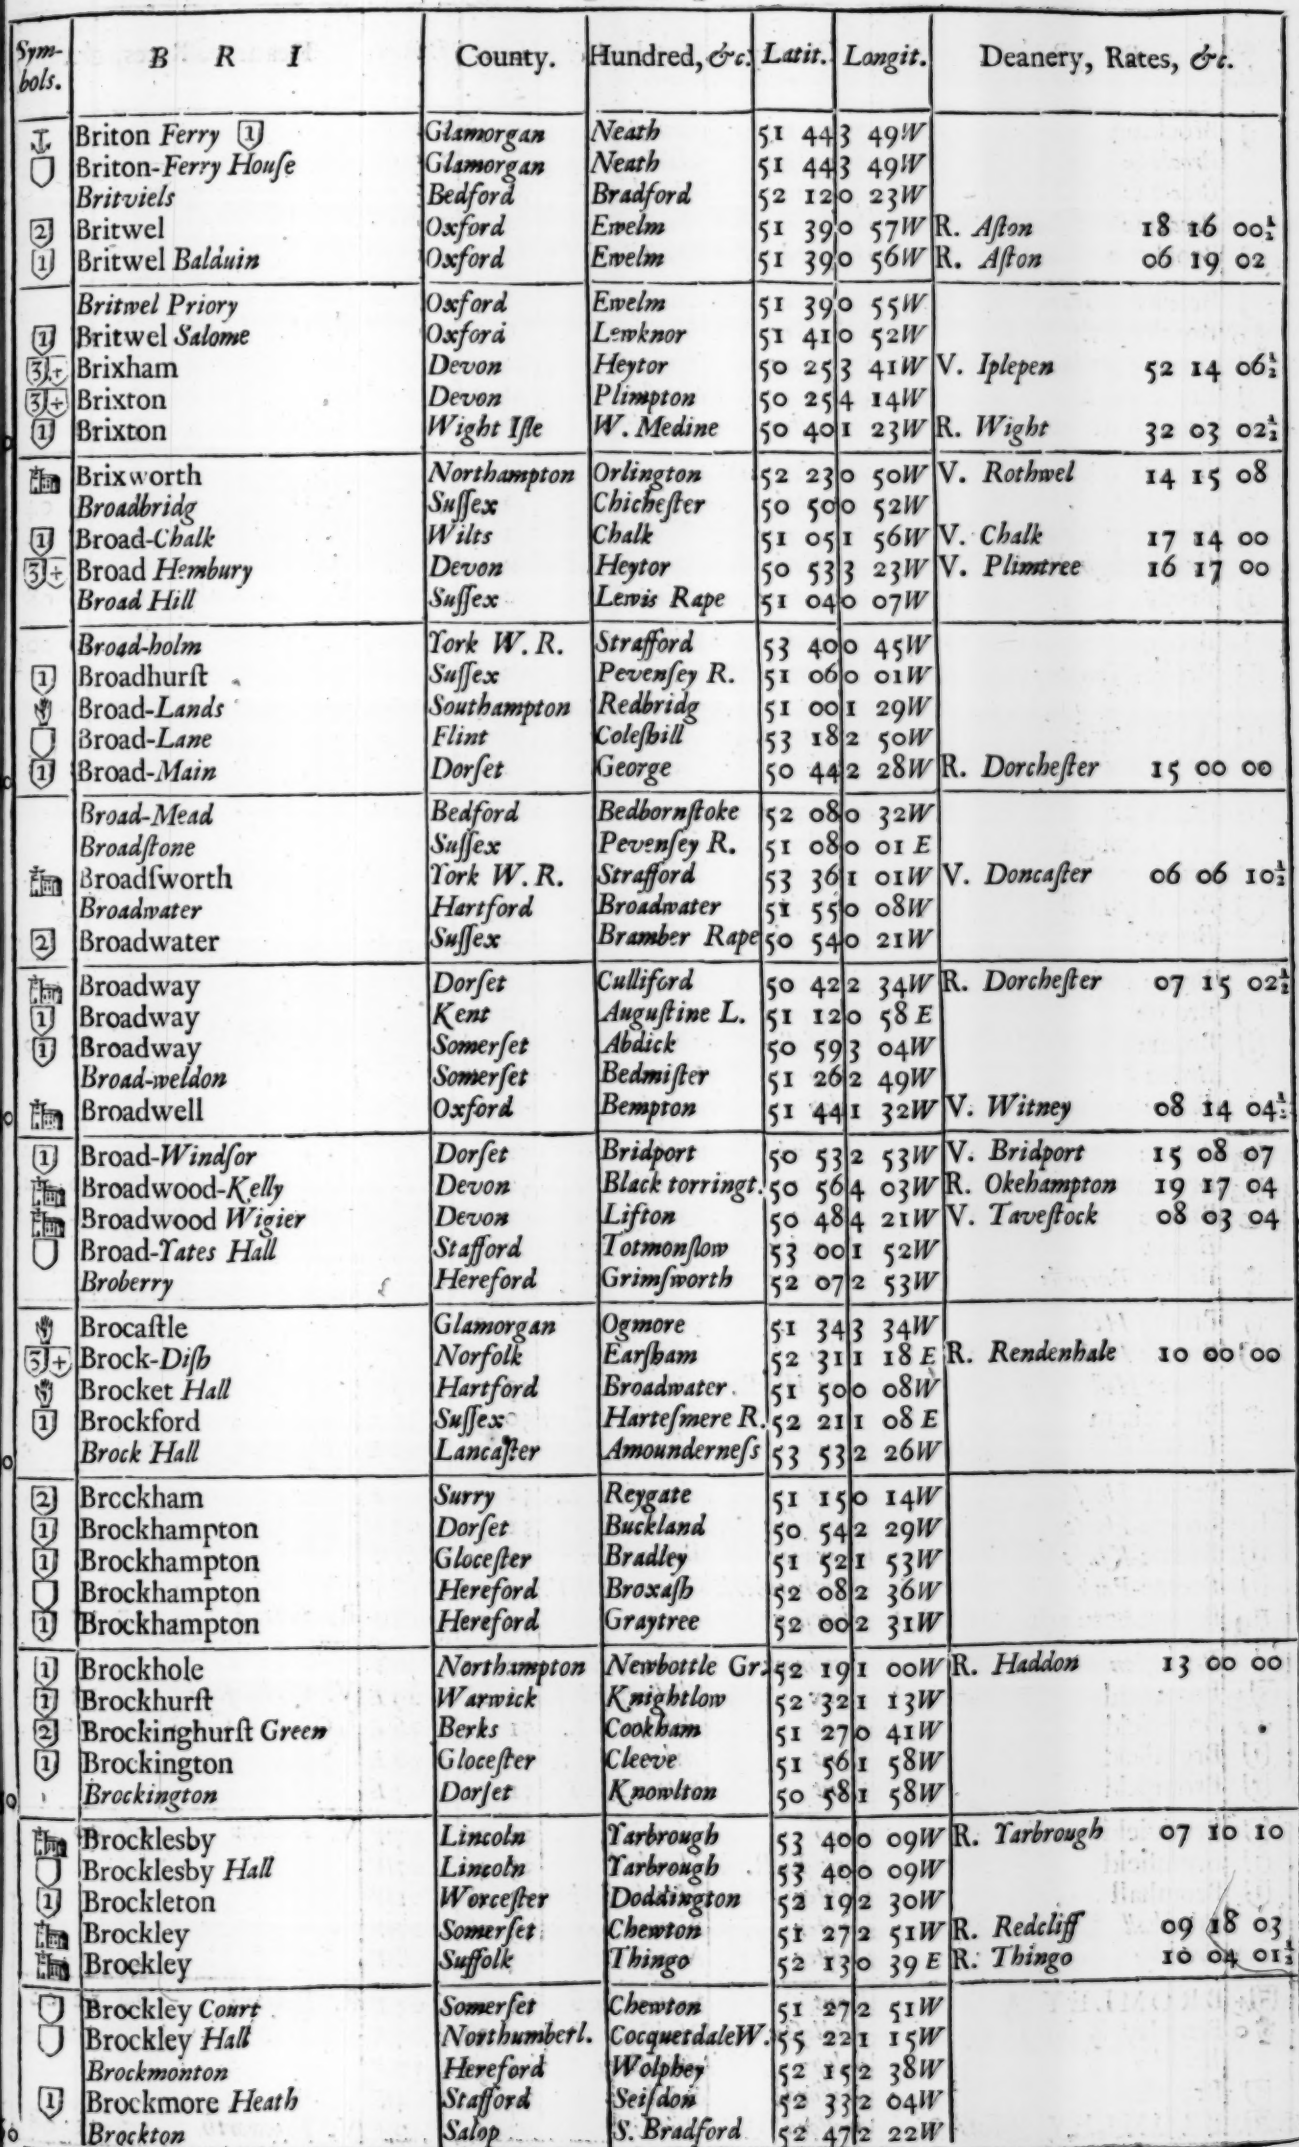 Sym-bols. B R I County. Hundred, &c. Latit. Longit. Deanery, Rates, &c.
Briton Ferry 1 Glamorgan Neath 51 44 3 49W
Briton-Ferry Houſe Glamorgan Neath 51 44 3 49W
Britviels Bedford Bradford 52 12 0 23W
2 Britwel Oxford Ewelm 51 39 0 57W R. Aſton 18 16 00½
1 Britwel Balduin Oxford Ewelm 51 39 0 56W R. Aſton 06 19 02
Britwel Priory Oxford Ewelm 51 39 0 55W
1 Britwel Salome Oxford Lewknor 51 41 0 52W
3+ Brixham Devon Heytor 50 25 3 41W V. Iplepen 52 14 06½
3+ Brixton Devon Plimpton 50 25 4 14W
1 Brixton Wight Iſle W. Medine 50 40 1 23W R. Wight 32 03 02½
Brixworth Northampton Orlington 52 23 0 50W V. Rothwel 14 15 08
Broadbridg Suſſex Chicheſter 50 50 0 52W
1 Broad-Chalk Wilts Chalk 51 05 1 56W V. Chalk 17 14 00
3+ Broad Hembury Devon Heytor 50 53 3 23W V. Plimtree 16 17 00
Broad Hill Suſſex Lewis Rape 51 04 0 07W
Broad-holm York W. R. Strafford 53 40 0 45W
1 Broadhurſt Suſſex Pevenſey R. 51 06 0 01W
Broad-Lands Southampton Redbridg 51 00 1 29W
Broad-Lane Flint Coleſhill 53 18 2 50W
1 Broad-Main Dorſet George 50 44 2 28W R. Dorcheſter 15 00 00
Broad-Mead Bedford Bedbornſtoke 52 08 0 32W
Broadſtone Suſſex Pevenſey R. 51 08 0 01 E
Broadſworth York W. R. Strafford 53 36 1 01W V. Doncaſter 06 06 10½
Broadwater Hartford Broadwater 51 55 0 08W
2 Broadwater Suſſex Bramber Rape 50 54 0 21W
Broadway Dorſet Culliford 50 42 2 34W R. Dorcheſter 07 15 02½
1 Broadway Kent Auguſtine L. 51 12 0 58 E
1 Broadway Somerſet Abdick 50 59 3 04W
Broad-weldon Somerſet Bedmiſter 51 26 2 49W
Broadwell Oxford Bempton 51 44 1 32W V. Witney 08 14 04½
1 Broad-Windſor Dorſet Bridport 50 53 2 53W V. Bridport 15 08 07
Broadwood-Kelly Devon Black torringt. 50 56 4 03W R. Okehampton 19 17 04
Broadwood Wigier Devon Lifton 50 48 4 21W V. Taveſtock 08 03 04
Broad-Yates Hall Stafford Totmonſlow 53 00 1 52W
Broberry Hereford Grimſworth 52 07 2 53W
Brocaſtle Glamorgan Ogmore 51 34 3 34W
3+ Brock-Diſh Norfolk Earſham 52 31 1 18 E R. Rendenhale 10 00 00
Brocket Hall Hartford Broadwater 51 50 0 08W
1 Brockford Suſſex Harteſmere R. 52 21 1 08 E
Brock Hall Lancaſter Amounderneſs 53 53 2 26W
2 Brockham Surry Reygate 51 15 0 14W
1 Brockhampton Dorſet Buckland 50 54 2 29W
1 Brockhampton Gloceſter Bradley 51 52 1 53W
Brockhampton Hereford Broxaſh 52 08 2 36W
1 Brockhampton Hereford Graytree 52 00 2 31W
1 Brockhole Northampton Newbottle Gr. 52 19 1 00W R. Haddon 13 00 00
1 Brockhurſt Warwick Knightlow 52 32 1 13W
2 Brockinghurſt Green Berks Cookham 51 27 0 41W
1 Brockington Gloceſter Cleeve 51 56 1 58W
Brockington Dorſet Knowlton 50 58 1 58W
Brocklesby Lincoln Yarbrough 53 40 0 09W R. Yarbrough 07 10 10
Brocklesby Hall Lincoln Yarbrough 53 40 0 09W
1 Brockleton Worceſter Doddington 52 19 2 30W
Brockley Somerſet Chewton 51 27 2 51W R. Redcliff 09 18 03
Brockley Suffolk Thingo 52 13 0 39 E R. Thingo 10 04 01½
Brockley Court Somerſet Chewton 51 27 2 51W
Brockley Hall Northumberl. Cocquetdale W. 55 22 1 15W
Brockmonton Hereford Wolphey 52 15 2 38W
1 Brockmore Heath Stafford Seiſdon 52 33 2 04W
Brockton Salop S. Bradford 52 47 2 22W